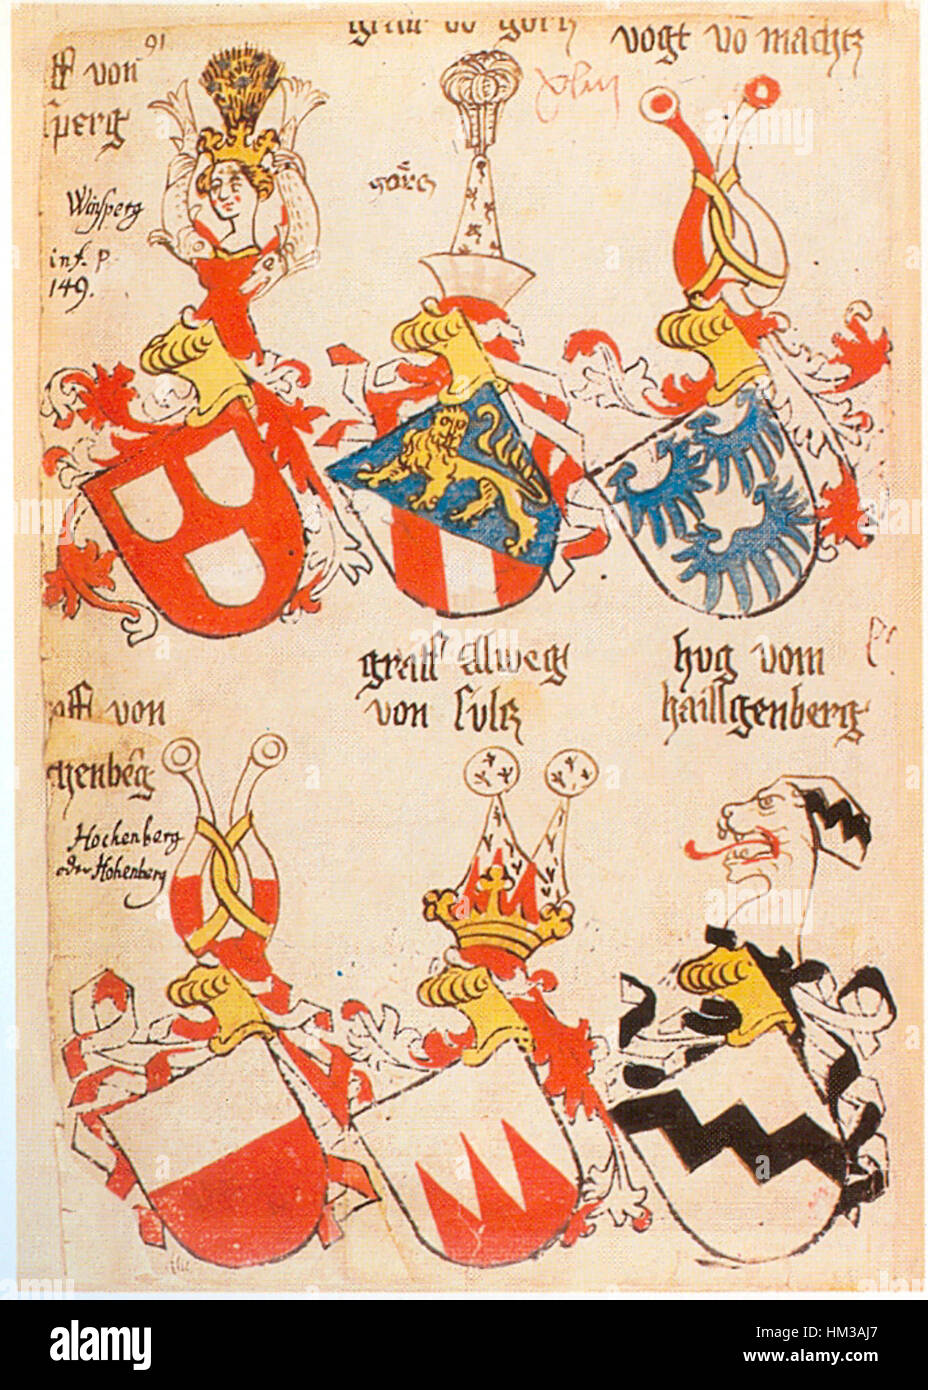 91
ff von
sperg
Winsperg
inf. p.
149.
graff vo görtz
görtz
vogt vo machtz
graff alweg
von sulz
hug vom
haillgenberg
off von
henberg
Hochenberg
oder Hohenberg
alamy stock photo
HM3AJ7